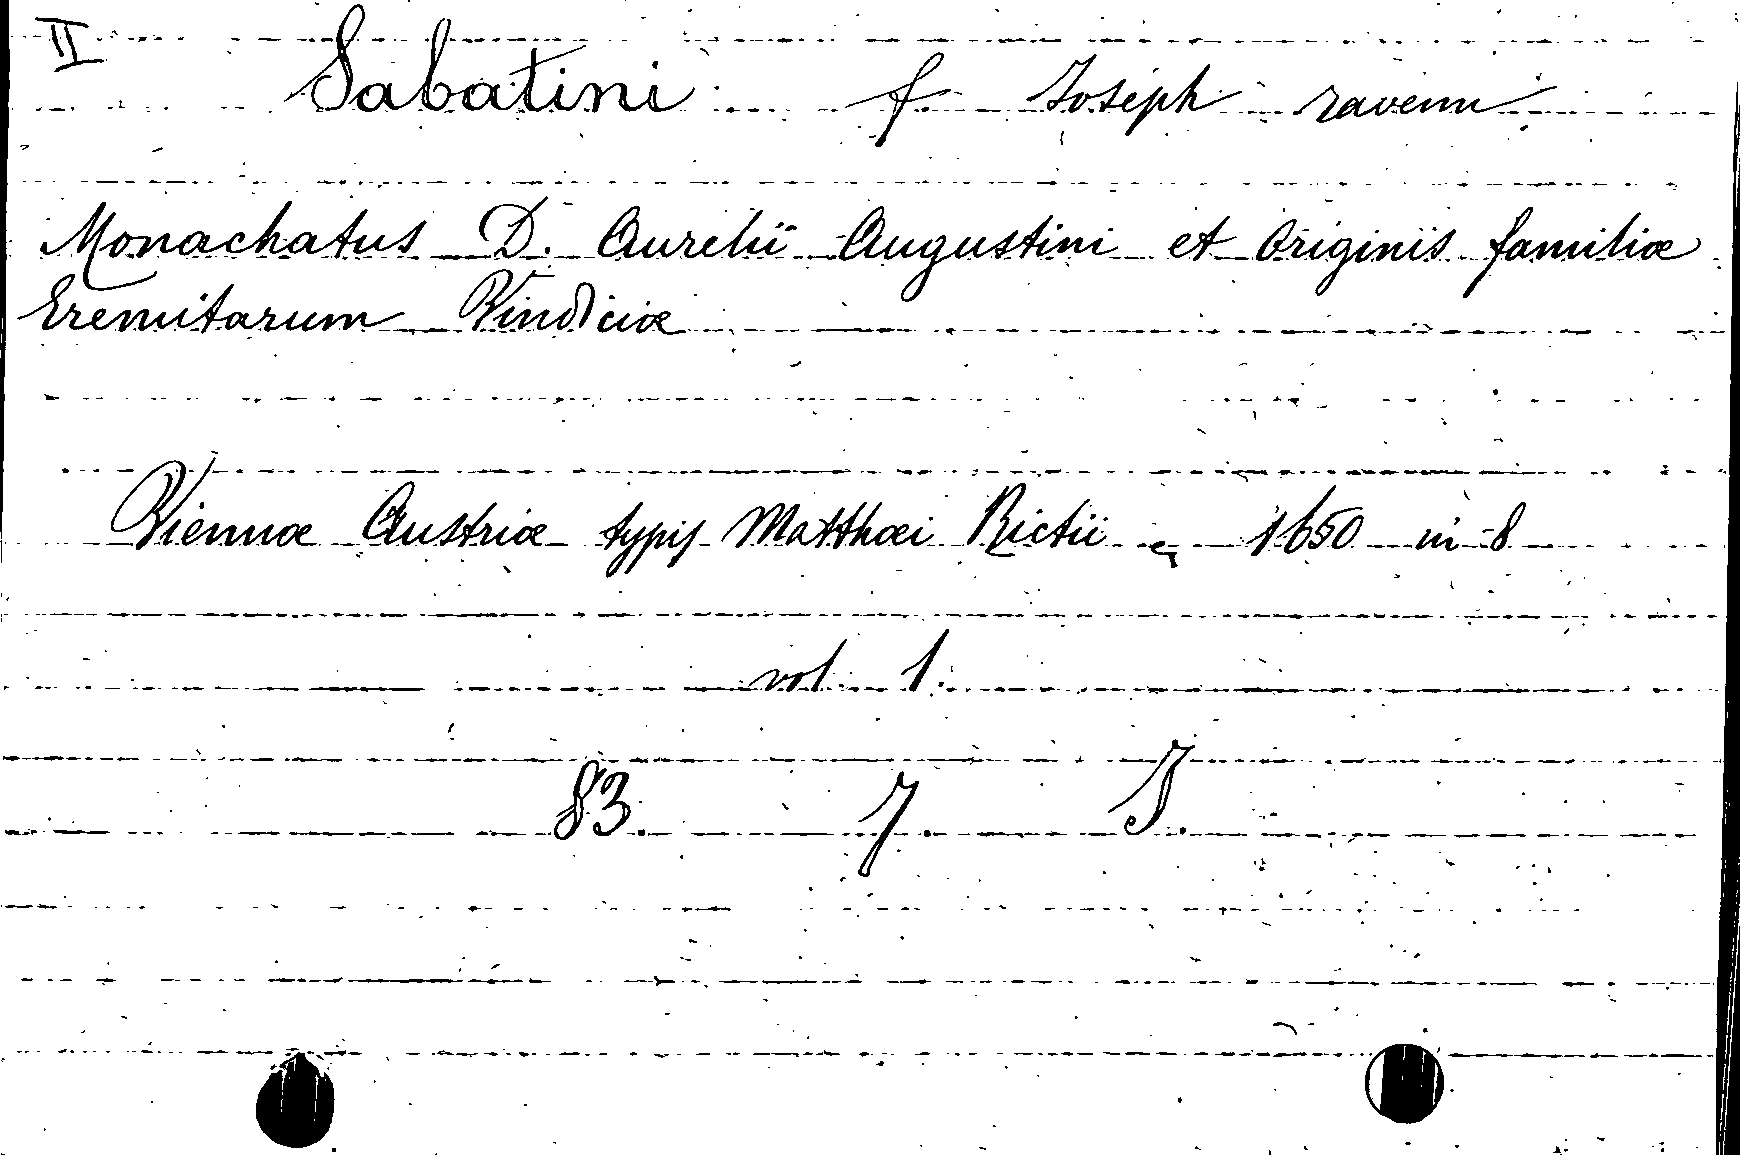 II
Sabatini f. Joseph raven
Monachatus D. Aurelii Augustini et Originis familiæ
Eremitarum Vindiciæ
Viennæ Austriæ typis Matthæi Rictii 1650 in 8
vol 1.
83. 7. J.